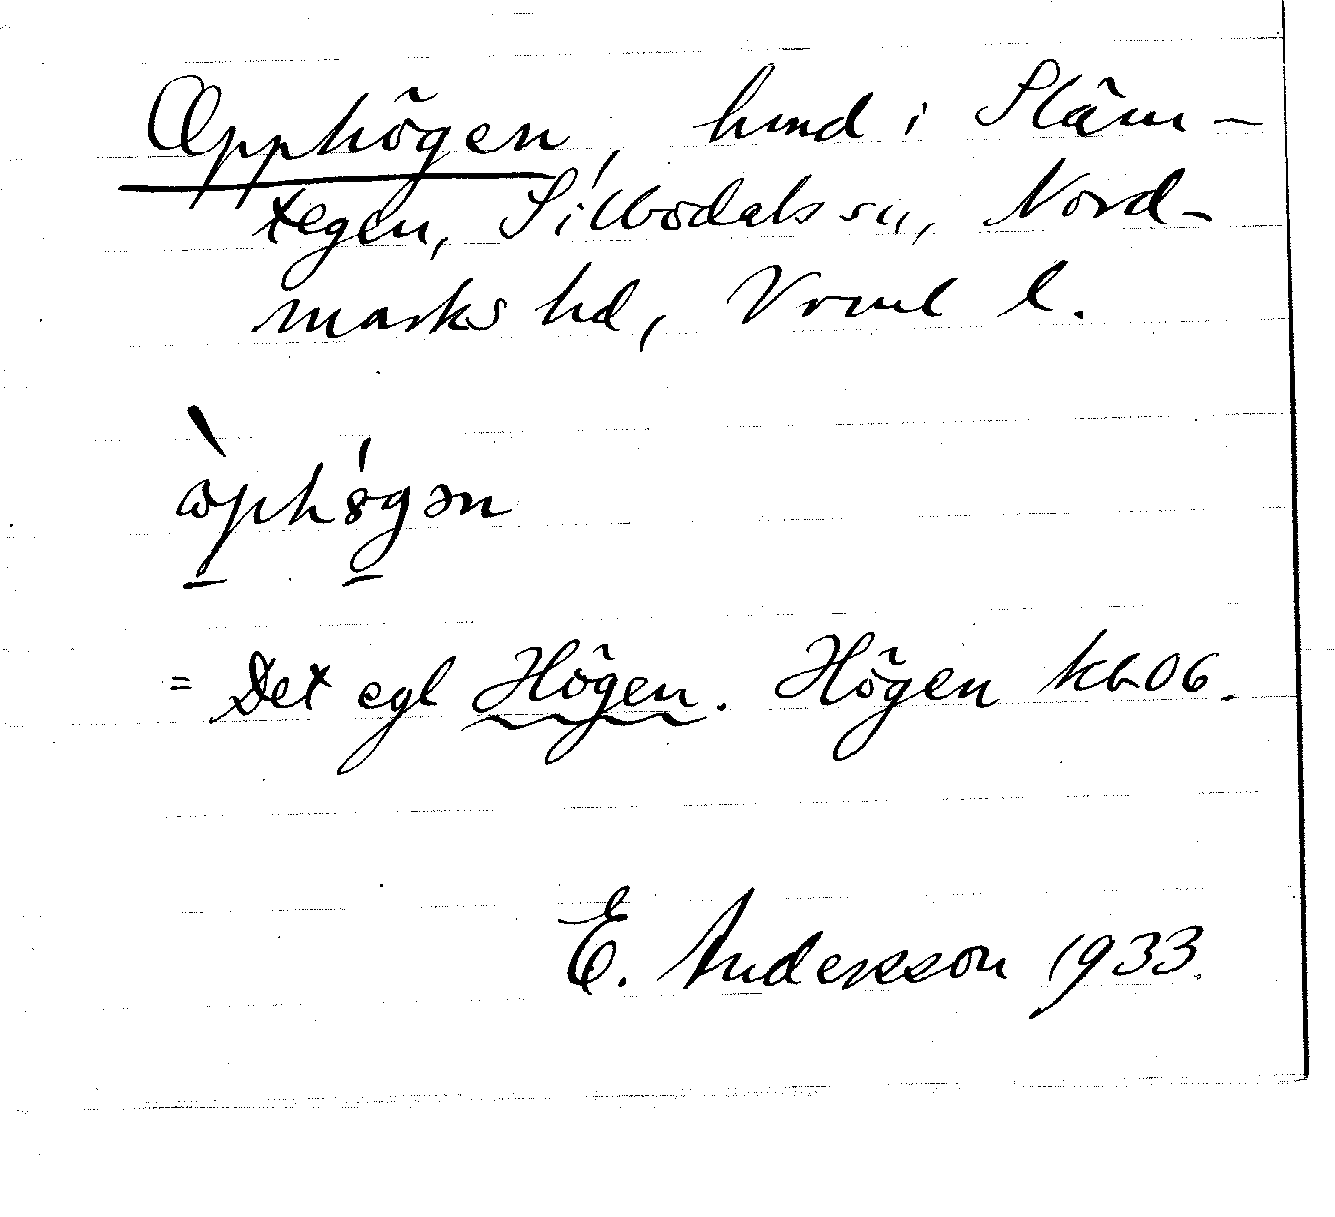 Opphögen, hmd i Släm-
tegen, Silbodals sn, Nord-
marks hd, Vrml l.
òphögən
= Det egl Högen. Högen kb06.
E. Andersson 1933.